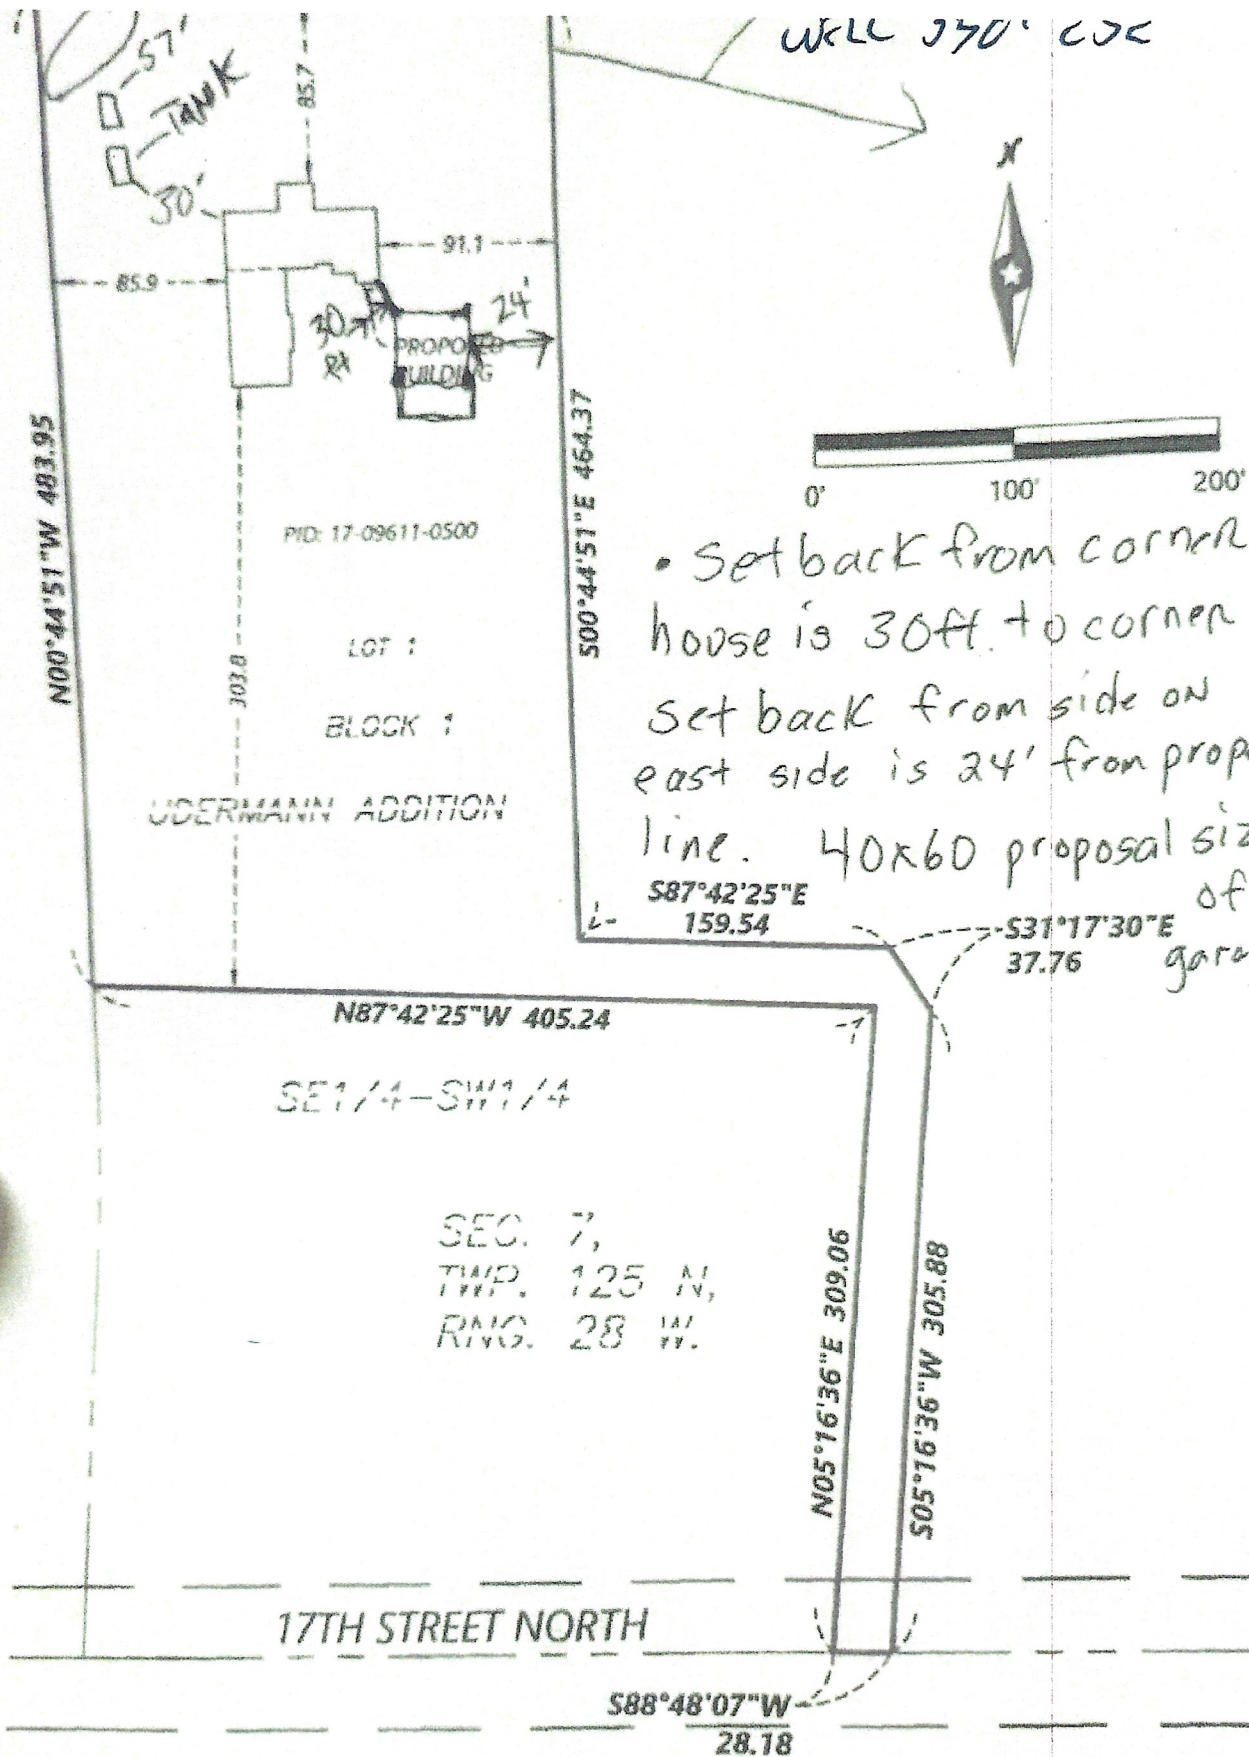 WELL
57'
TANK
30'
85.7
N
91.1
85.9
24'
30
PROPOSED
BUILDING
N00°44'51"W 483.95
S00°44'51"E 464.37
0' 100' 200'
PID: 17-09611-0500
303.8
LOT 1
BLOCK 1
UDERMANN ADDITION
• Set back from corner
house is 30ft. to corner
set back from side on
east side is 24' from prope
line. 40x60 proposal siz
of
gara
S87°42'25"E
159.54
S31°17'30"E
37.76
N87°42'25"W 405.24
SE1/4-SW1/4
SEC. 7,
TWP. 125 N,
RNG. 28 W.
N05°16'36"E 309.06
S05°16'36"W 305.88
17TH STREET NORTH
S88°48'07"W
28.18